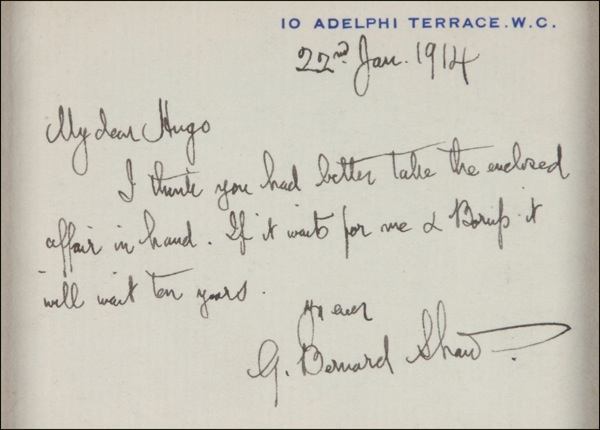 10 ADELPHI TERRACE. W.C.
22nd Jan. 1914
My dear Hugo
I think you had better take the enclosed
affair in hand. If it waits for me & it
will wait ten years.
ever
G. Bernard Shaw